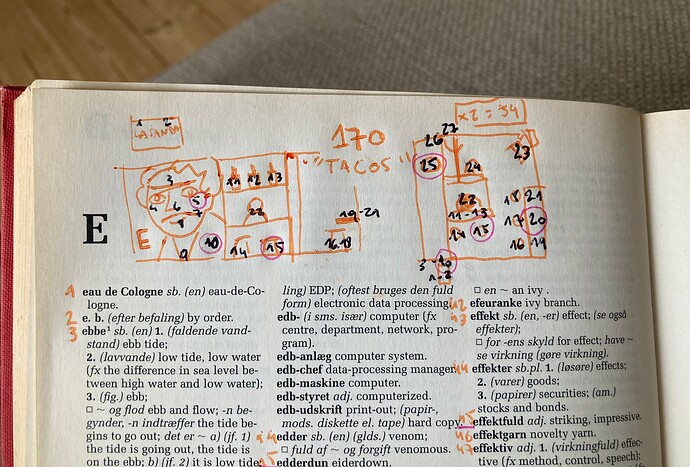 1 2
LA FANDA
170
"TACOS"
x2 = 34
26 27
25
24
23
3
4 6 5
7
8
9
10
E
11 12 13
22
14 15
19-21
16-18
22
11-13
14 15
18 21
17 20
16 19
3-10
1-2
E
1 eau de Cologne sb. (en) eau-de-Co-
logne.
2 e. b. (efter befaling) by order.
3 ebbe¹ sb. (en) 1. (faldende vand-
stand) ebb tide;
2. (lavvande) low tide, low water
(fx the difference in sea level be-
tween high water and low water);
3. (fig.) ebb;
□ ~ og flod ebb and flow; -n be-
gynder, -n indtræffer the tide be-
gins to go out; det er ~ a) (jf. 1)
the tide is going out, the tide is
on the ebb; b) (jf. 2) it is low tide
ling) EDP; (oftest bruges den fuld
form) electronic data processing.
edb- (i sms. især) computer (fx
centre, department, network, pro-
gram).
edb-anlæg computer system.
edb-chef data-processing manager.
edb-maskine computer.
edb-styret adj. computerized.
edb-udskrift print-out; (papir-,
mods. diskette el. tape) hard copy.
edder sb. (en) (glds.) venom;
□ fuld af ~ og forgift venomous.
edderdun eiderdown.
□ en ~ an ivy .
efeuranke ivy branch.
effekt sb. (en, -er) effect; (se også
effekter);
□ for -ens skyld for effect; have ~
se virkning (gøre virkning).
44 effekter sb.pl. 1. (løsøre) effects;
2. (varer) goods;
3. (papirer) securities; (am.)
stocks and bonds.
45 effektfuld adj. striking, impressive.
46 effektgarn novelty yarn.
47 effektiv adj. 1. (virkningsfuld) effec-
tive (fx method, control, speech);